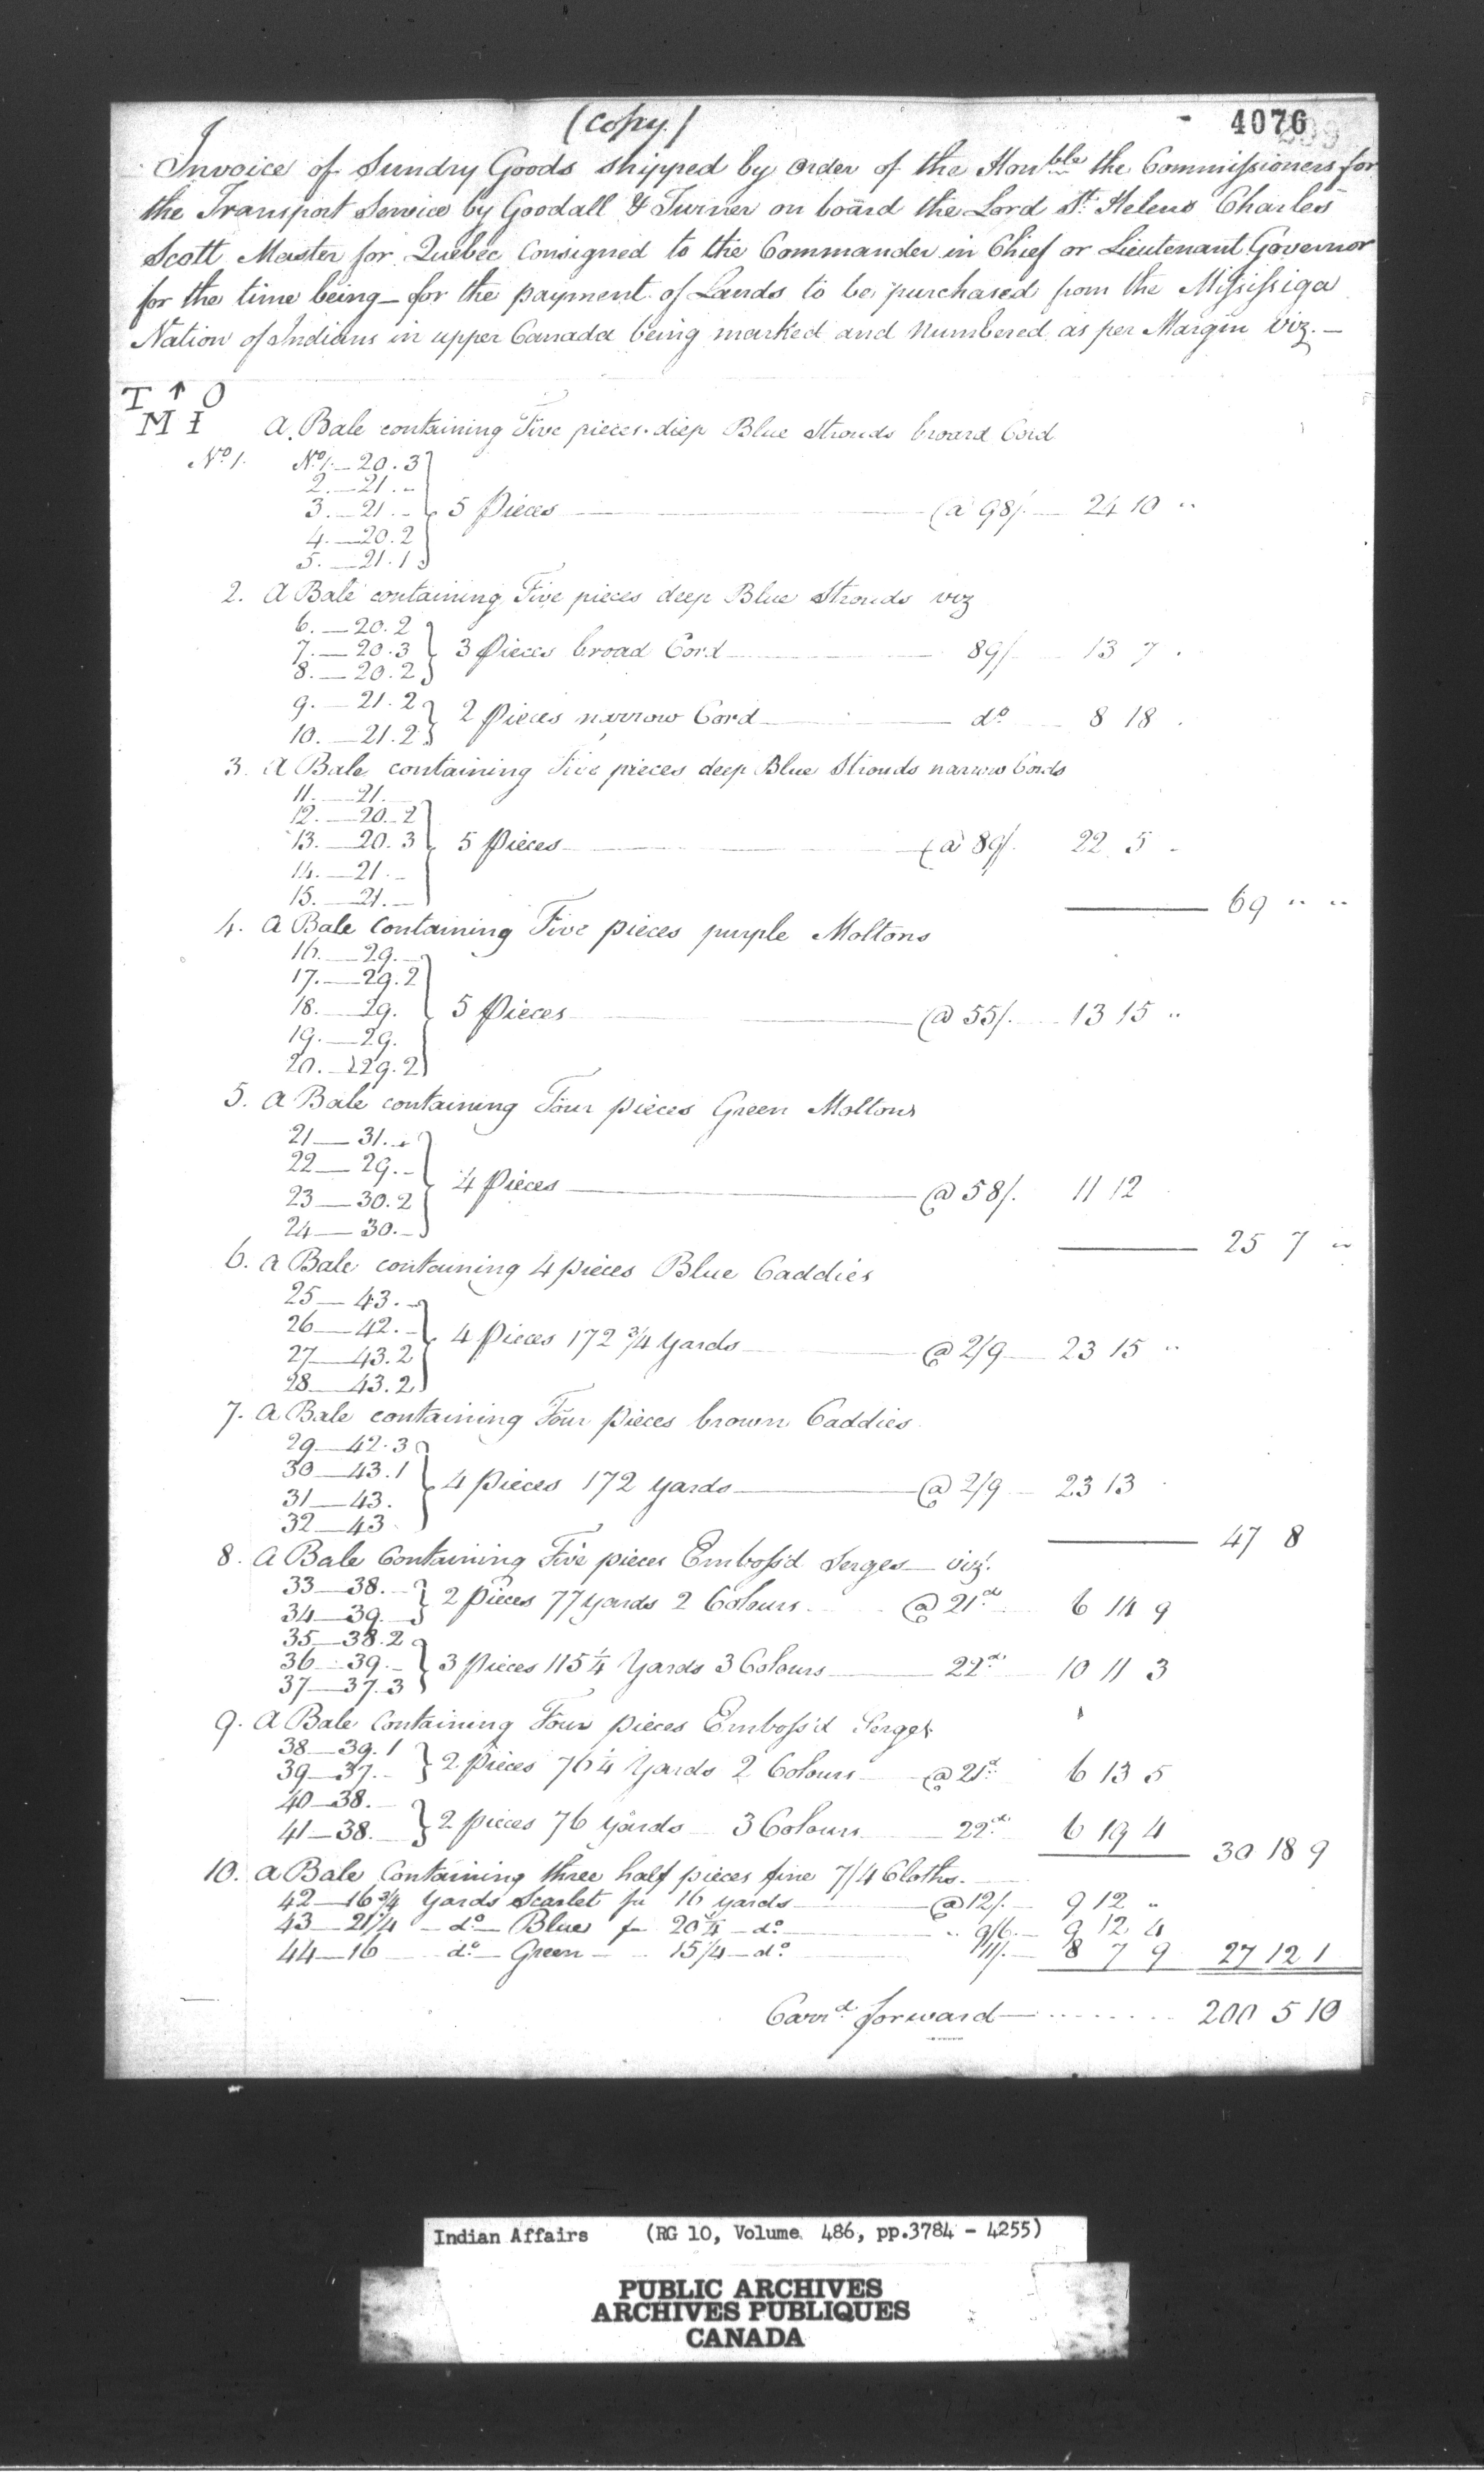 (Copy)
4076
Invoice of Sundry Goods shipped by order of the Honble the Commissioners for
the Transport Service by Goodall & Turner on board the Lord St. Helens Charles
Scott Master for Quebec Consigned to the Commander in Chief or Lieutenant Governor
for the time being — for the payment of Lands to be purchased from the Mississiga
Nation of Indians in upper Canada being marked and numbered as per Margin viz. —
T ↑ O
M I
A Bale containing Five pieces deep Blue Strouds broard Cord
No. 1. No. 1. — 20.3
2. — 21. —
3. — 21. — 5 Pieces — @ 98/. — 24 10 ..
4. — 20.2
5. — 21.1
2. A Bale containing Five pieces deep Blue Strouds viz
6. — 20.2
7. — 20.3 3 Pieces broad Cord — 89/ — 13 7 .
8. — 20.2
9. — 21.2 2 Pieces narrow Cord — do — 8 18 .
10. — 21.2
3. A Bale containing Five pieces deep Blue Strouds narrow Cords
11. — 21.
12. — 20.2
13. — 20.3 5 Pieces — @ 89/. 22 5 -
14. — 21. —
15. — 21. —
69 .. ..
4. A Bale Containing Five pieces purple Moltons
16. — 29. —
17. — 29.2
18. — 29. 5 Pieces — @ 55/. — 13 15 ..
19. — 29.
20. — 29.2
5. A Bale containing Four pieces Green Moltons
21 — 31. -
22 — 29. - 4 Pieces — @ 58/. 11 12
23 — 30.2
24 — 30. -
25 7 ..
6. A Bale containing 4 pieces Blue Caddies
25 — 43. -
26 — 42. - 4 Pieces 172 3/4 yards — @ 2/9 — 23 15 ..
27 — 43.2
28 — 43.2
7. A Bale containing Four pieces brown Caddies
29 — 42.3
30 — 43.1 4 Pieces 172 yards — @ 2/9 — 23 13
31 — 43.
32 — 43
47 8
8. A Bale Containing Five pieces Emboss'd Serges — viz.
33 — 38. - 2 Pieces 77 yards 2 Colours — @ 21d — 6 14 9
34 — 39. -
35 — 38.2
36 — 39. - 3 Pieces 115 1/4 Yards 3 Colours — 22d — 10 11 3
37 — 37.3
9. A Bale Containing Four pieces Emboss'd Serges
38 — 39.1 2 Pieces 76 1/4 Yards 2 Colours — @ 21d 6 13 5
39 — 37. -
40 — 38. -
41 — 38. - 2 pieces 76 yards — 3 Colours — 22d 6 19 4
30 18 9
10. A Bale Containing three half pieces fine 7/4 Cloths. —
42 — 16 3/4 Yards Scarlet for 16 yards — @ 12/. — 9 12 ..
43 — 21 1/4 — do — Blue for 20 1/4 — do — .. 9/6 — 9 12 4
44 — 16 — do — Green — 15 1/4 — do 11/. — 8 7 9 27 12 1
Carrd forward — 200 5 10
Indian Affairs (RG 10, Volume 486, pp.3784 - 4255)
PUBLIC ARCHIVES
ARCHIVES PUBLIQUES
CANADA